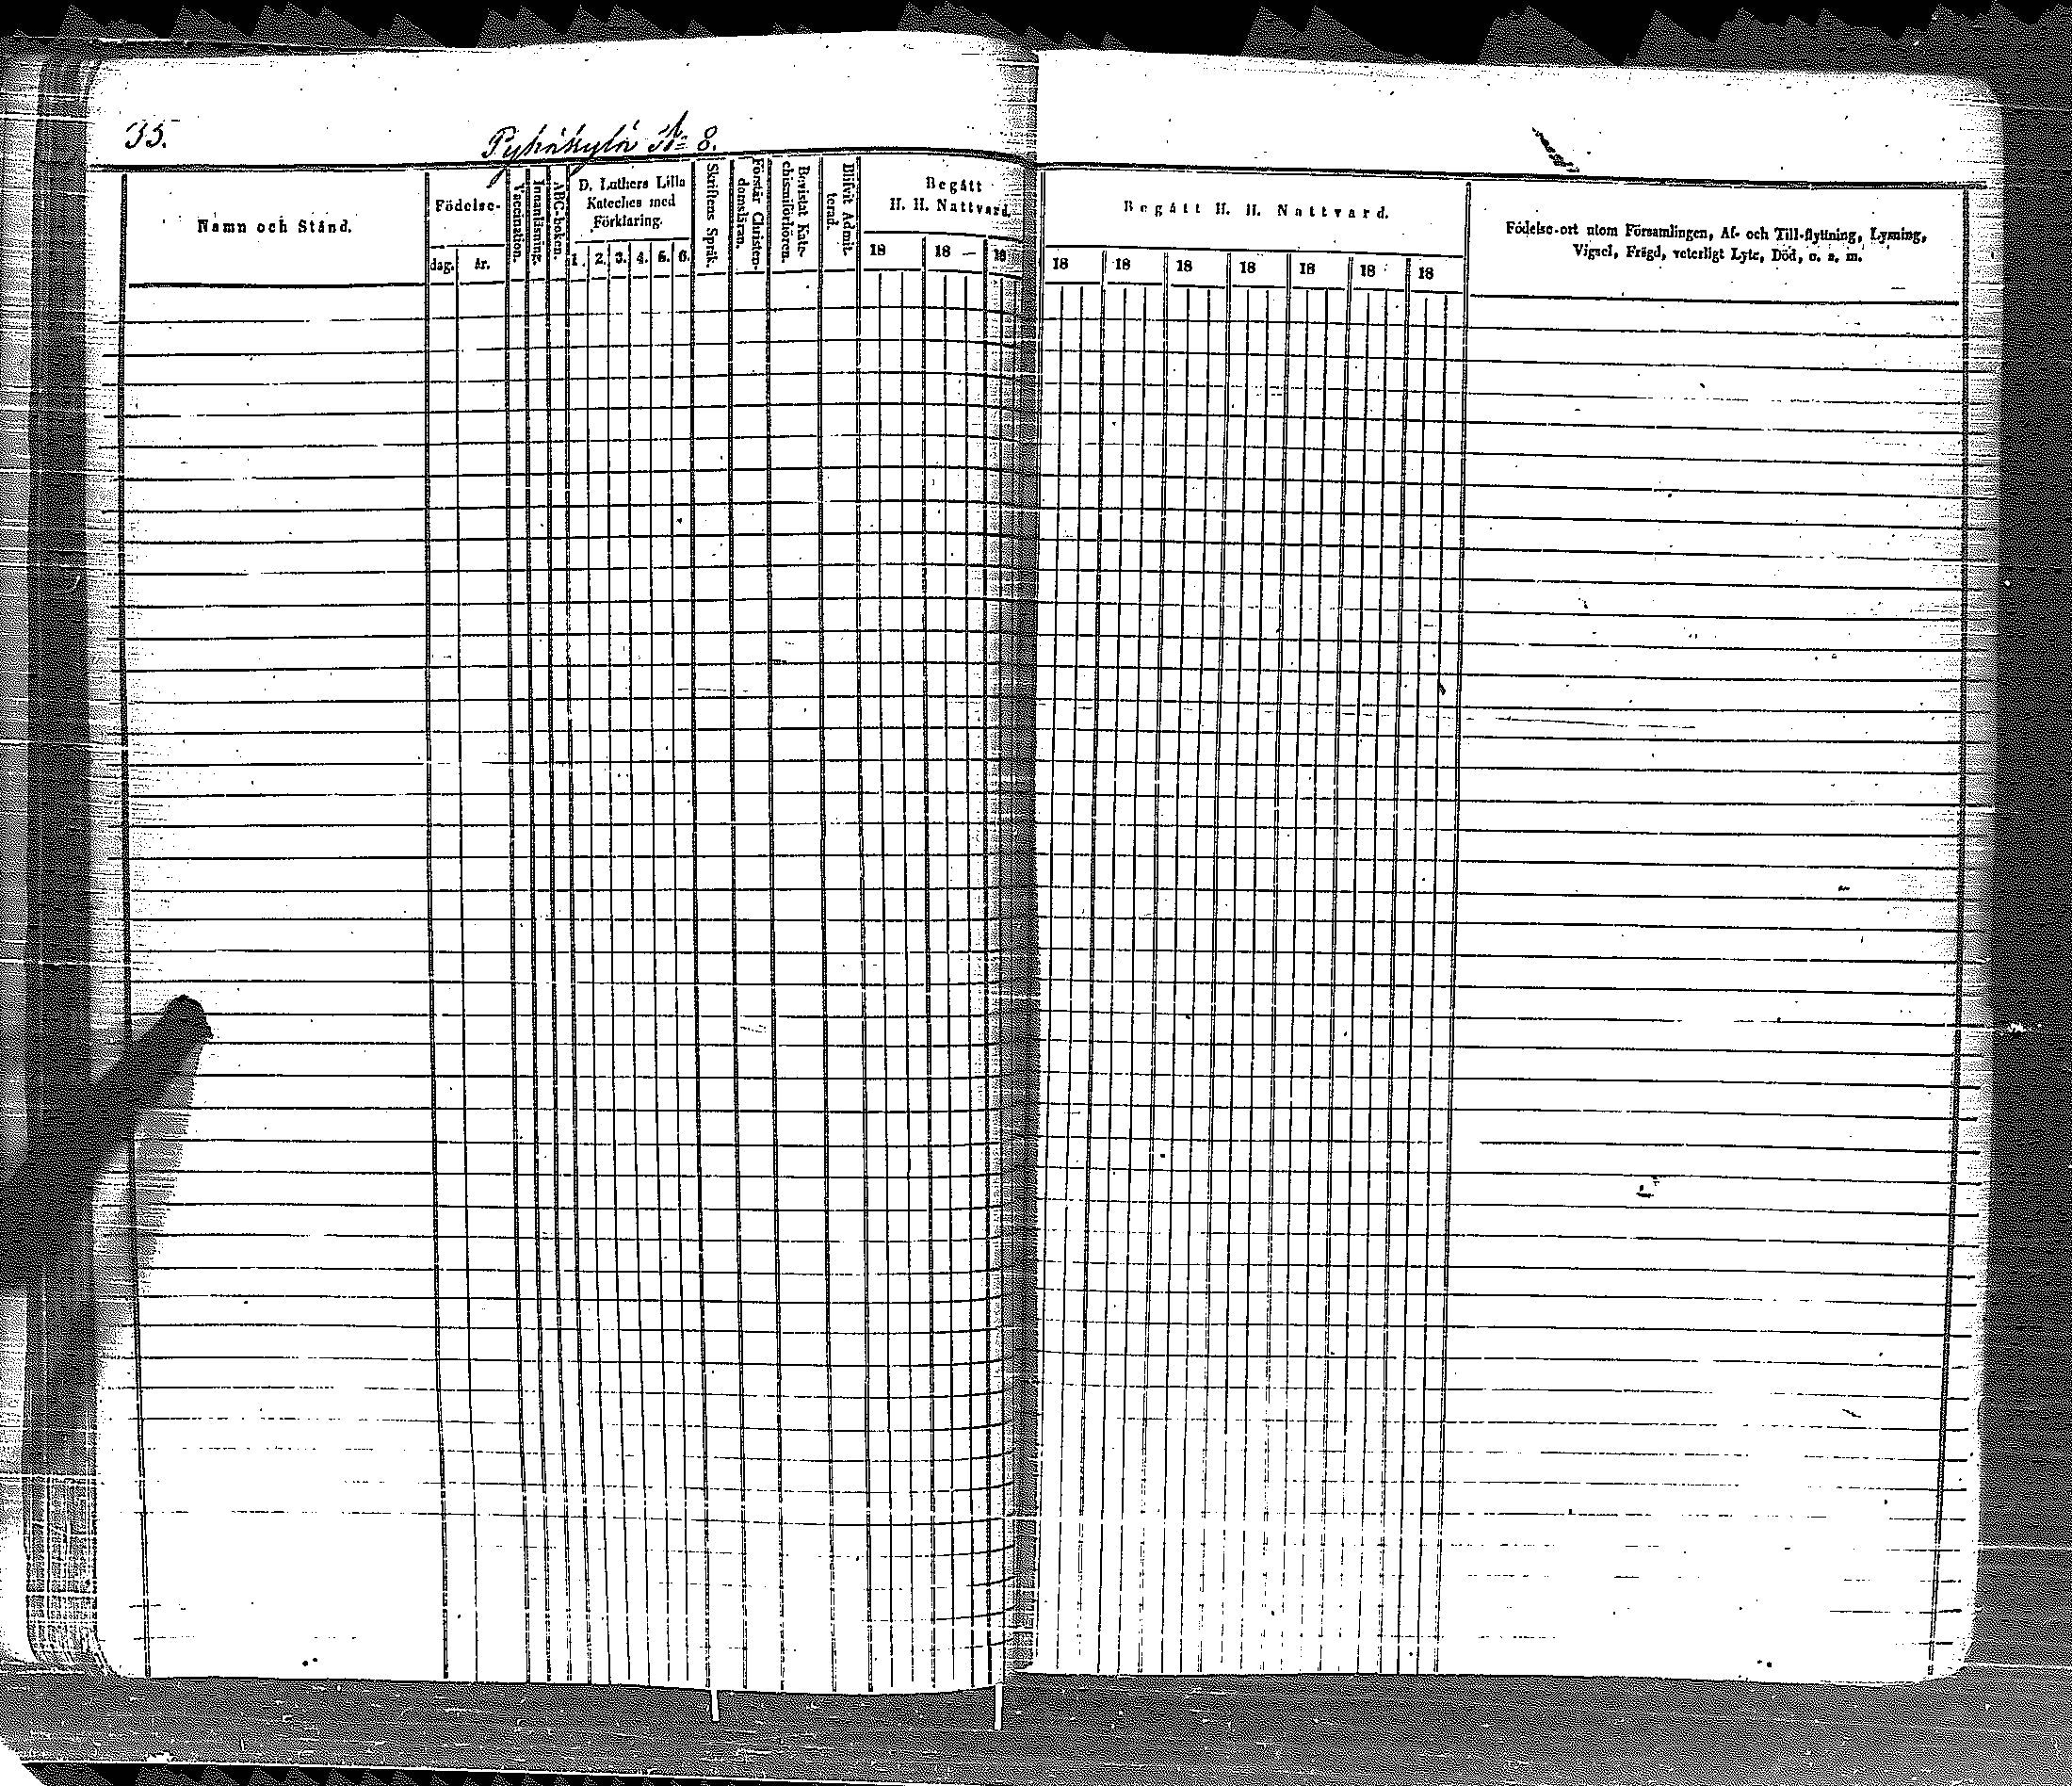 35.
Pyhäkylä No 8.
Namn och Stånd.
Födelse-
dag.
år.
Vaccination.
Innanläsning.
ABC-boken.
D. Luthers Lilla
Kateches med
Förklaring.
1. 2. 3. 4. 5. 6.
Skriftens Språk.
Förstår Christen-
domsläran.
Bevistat Kate-
chismiförhören.
Blifvit Admit-
terad.
Begått
H. H. Nattvard.
18 18 18
Begått H. H. Nattvard.
18 18 18 18 18 18 18
Födelse-ort utom Församlingen, Af- och Till-flyttning, Lysning,
Vigsel, Frägd, veterligt Lyte, Död, o. s. m.